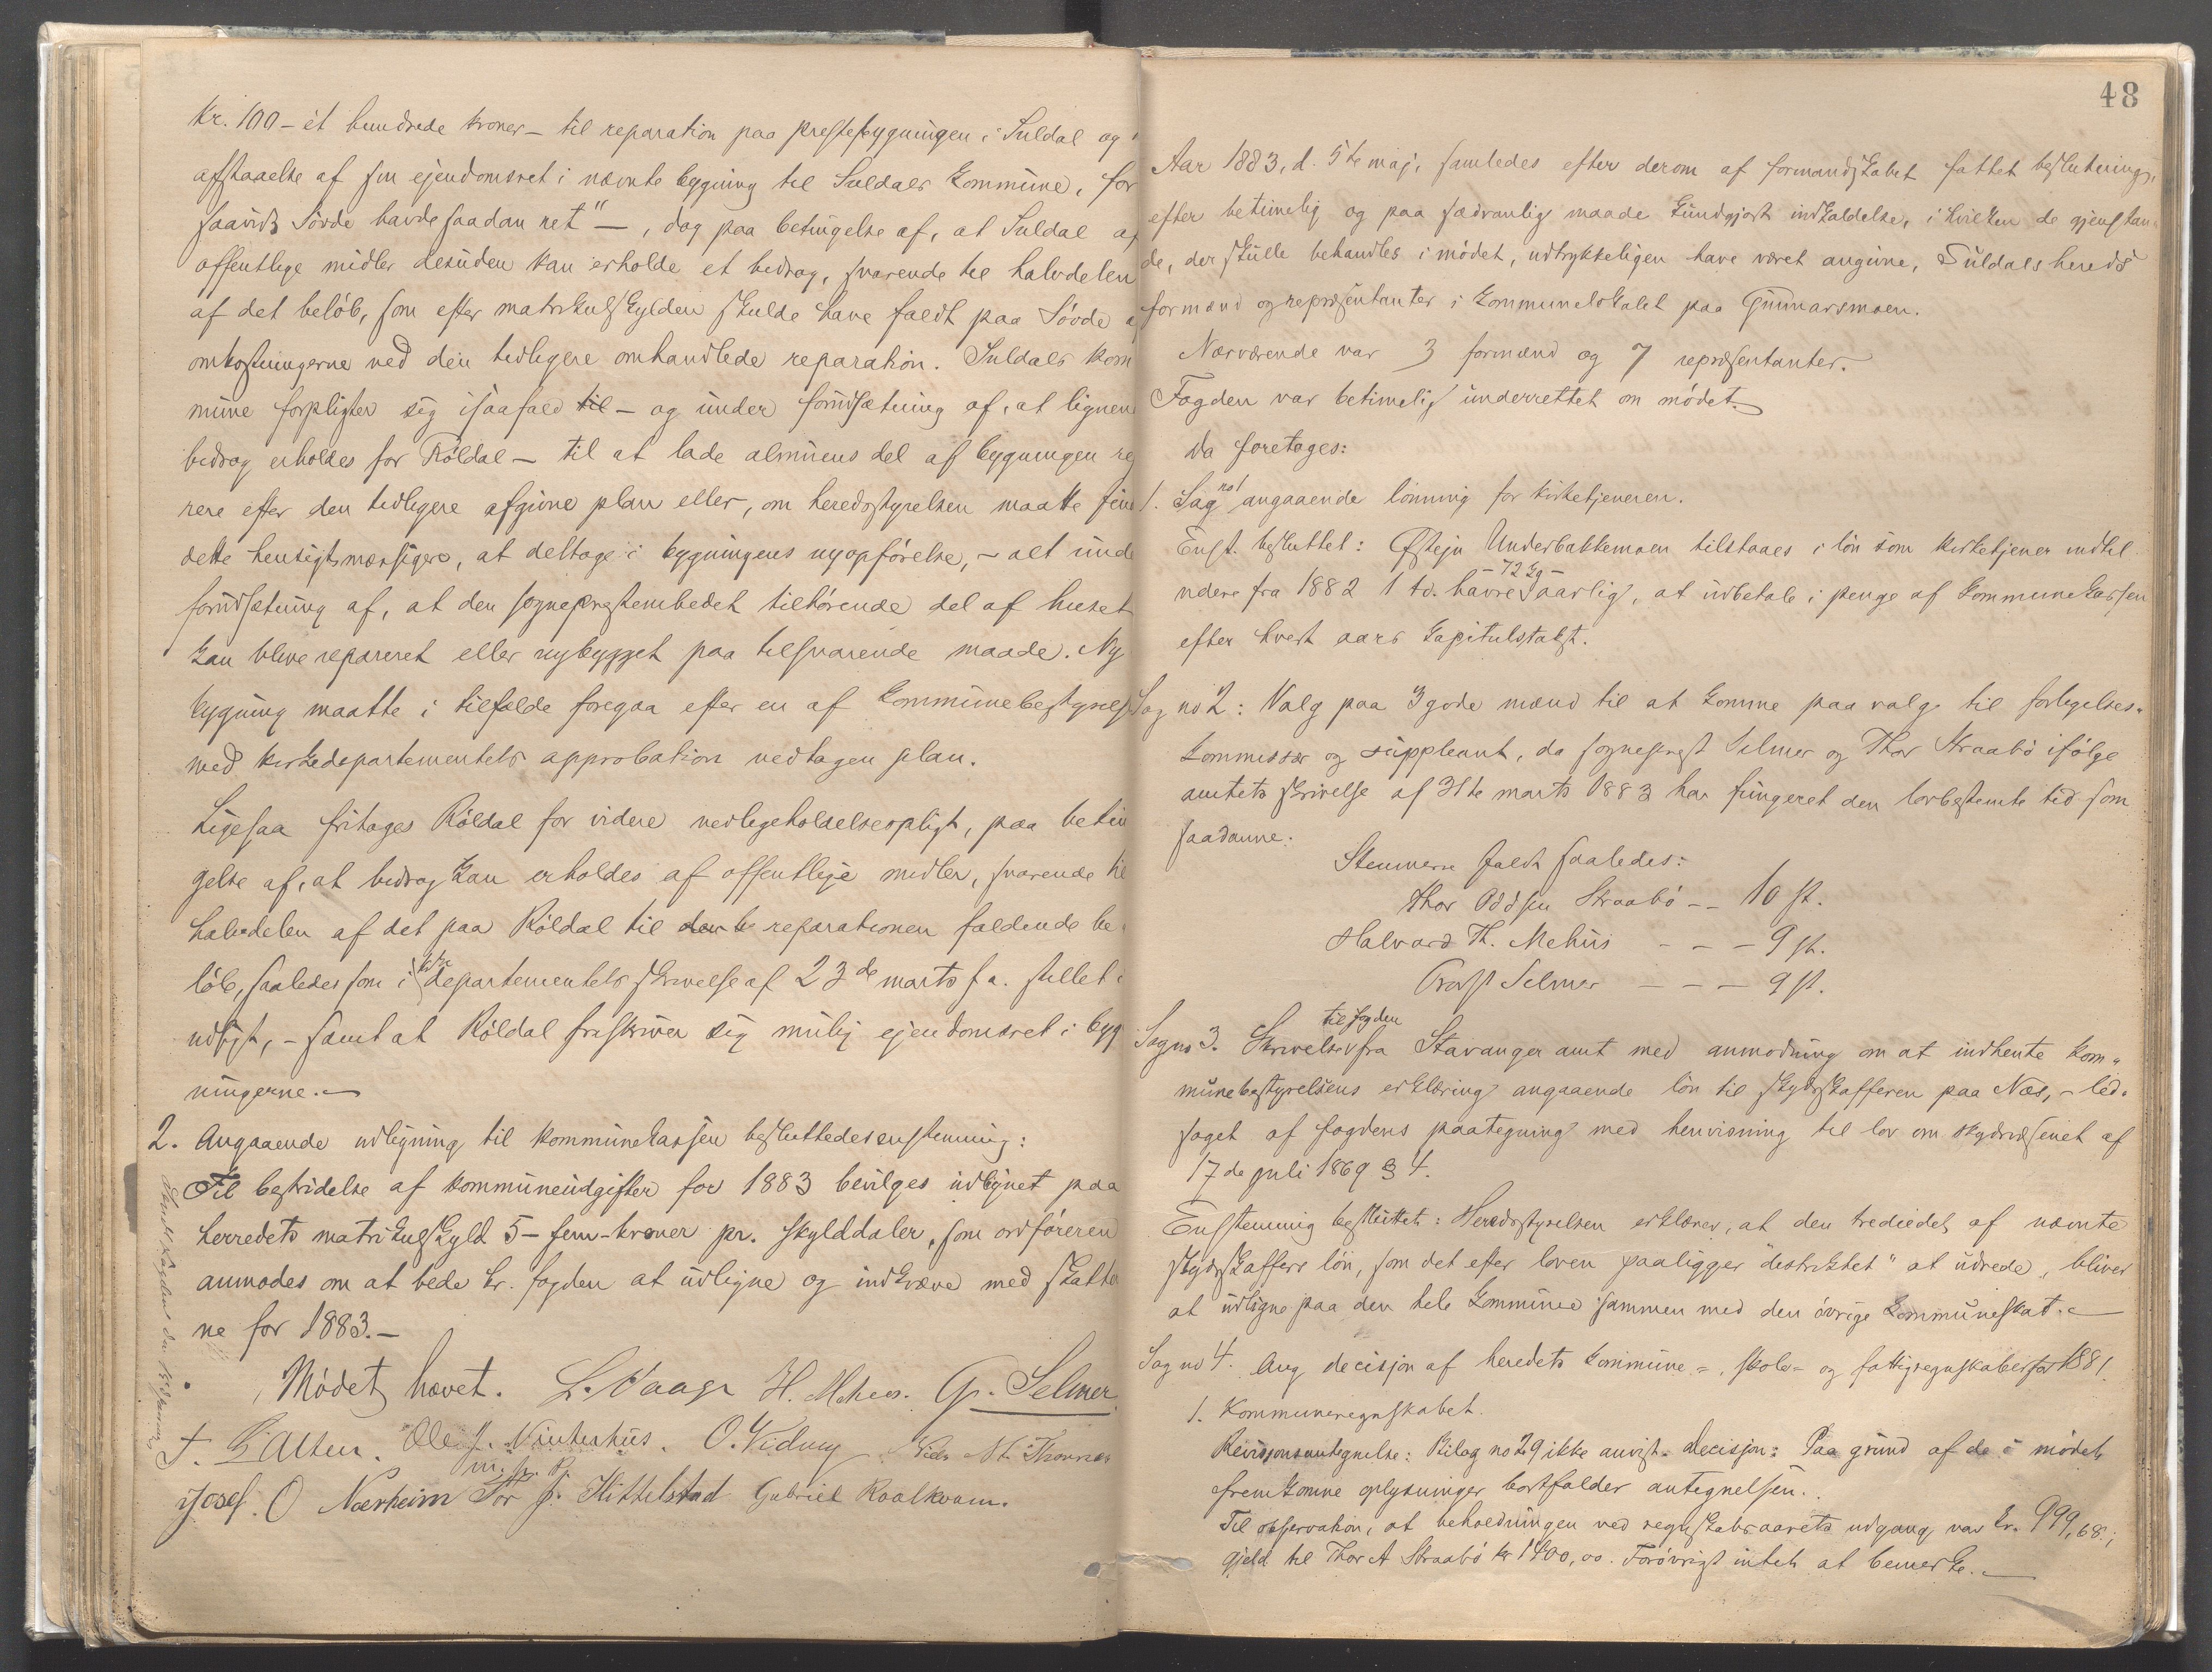 Kr. 100 - ét hundrede kroner - til reparation paa prestebygningen i Suldal og
afstaaelse af sin ejendomsret i nævnte bygning til Suldals kommune, for
saavidt Søvde havde saadan ret" -, dog paa betingelse af, at Suldal af
offentlige midler desuden kan erholde et bidrag, svarende til halvdelen
af det beløb, som efter matrikulskylden skulde have faldt paa Søvde af
omkostningerne ved den tidligere omhandlede reparation. Suldals kom
mune forpligter sig isaafald til - og under forudsætning af, at lignen
bidrag erholdes for Røldal - til at lade almuens del af bygningen re
rere efter den tidligere afgivne plan eller, om heredsstyrelsen maatte fin
dette hensigtsmæssigere, at deltage i bygningens nyopførelse, - alt unde
forudsætning af, at den sogneprestembedet tilhørende del af huset
kan blive repareret eller nybygget paa tilsvarende maade. Ny
bygning maatte i tilfælde foregaa efter en af kommunebestyrels
med kirkedepartementets approbation vedtagen plan.
Ligesaa fritages Røldal for videre vedligeholdelsespligt, paa betin
gelse af, at bidrag kan erholdes af offentlige midler, svarende til
halvdelen af det paa Røldal til reparationen faldende be
løb, saaledes som i departementets skrivelse af 23de marts f. a. stillet i
udsigt, - samt at Røldal fraskriver sig mulig ejendomsret i byg
ningerne. -
2. Angaaende udligning til kommunekassen besluttedes enstemmig:
Til bestridelse af kommuneudgifter for 1883 bevilges udlignet paa
herredets matrikulskyld 5 - fem - kroner pr. skylddaler, som ordføreren
anmodes om at bede hr. fogden at udligne og indkræve med skatte
ne for 1883. -
Mødet hævet. L. Vaage H. Mehus. G. Selmer
Ole J. Vinterhus. O. Vidmy
m. p. P.
Josef. O Nærheim Tor J. Hittelstad Gabriel Roalkvam.
48
Aar 1883, d. 5te maj, samledes efter derom af formandskabet fattet beslutning,
efter betimelig og paa sædvanlig maade kundgjort indkaldelse, i hvilken de gjenstan
de, der skulle behandles i mødet, udtrykkeligen have været angivne, Suldals hereds
formænd og repræsentanter i kommunelokalet paa Gunnarsmoen.
Nærværende var 3 formænd og 7 repræsentanter.
Fogden var betimelig underrettet om mødet.
Da foretoges:
1. Sag no 1 angaaende lønning for kirketjeneren.
Enst. besluttet: Østejn Underbakkemoen tilstaaes i løn som kirketjener indtil
- 72 kg -
videre fra 1882 1 td. havre aarlig, at udbetale i penge af kommunekassen
efter hvert aars kapitulstakst.
Sag no 2: Valg paa 3 gode mænd til at komme paa valg til forligelses-
kommissær og suppleant, da sogneprest Selmer og Thor Straabø ifølge
amtets skrivelse af 31te marts 1883 har fungeret den lovbestemte tid som
saadanne.
Stemmerne faldt saaledes:
Thor Oddsen Straabø - - 10 st.
Halvard Th. Mehus - - - 9 st.
Provst Selmer - - - 9 st.
til fogden
Sag no 3. Skrivelse fra Stavanger amt med anmodning om at indhente kom-
munebestyrelsens erklæring angaaende løn til skydsskafferen paa Næs, - led-
saget af fogdens paategning med henvisning til lov om skydsvæsenet af
17de juli 1869 § 4.
Enstemmig besluttet: Heredsstyrelsen erklærer, at den trediedel af nævnte
skydsskaffers løn, som det efter loven paaligger "distriktet" at udrede, bliver
at udligne paa den hele kommune sammen med den øvrige kommuneskat. -
Sag no 4. Ang decisjon af heredets kommune-, skole- og fattigregnskaber for 1881.
1. Kommuneregnskabet.
Revisjonsantegnelse: Bilag no 29 ikke anvist. Decisjon: Paa grund af de i mødet
fremkomne oplysninger bortfalder antegnelsen.
Til observation, at beholdningen ved regnskabsaarets udgang var kr. 999,68;
gjeld til Thor A Straabø kr 1400,00. Forøvrigt intet at bemerke. -